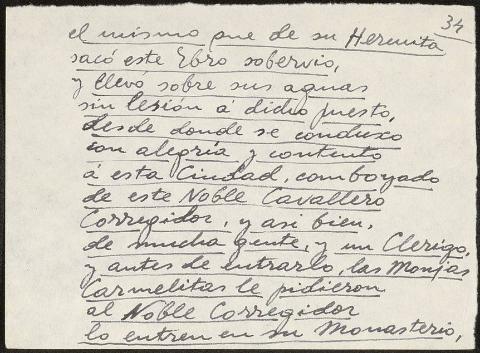 34
el mismo que de su Hermita
sacó este Ebro sobervio,
y llevó sobre sus aguas
sin lesión á dicho puesto,
desde donde se conduxo
con alegría y contento
á esta Ciudad, comboyado
de este Noble Cavallero
Corregidor, y asi bien,
de mucha gente, y un Clerigo,
y antes de entrarlo, las Monjas
Carmelitas le pidieron
al Noble Corregidor
lo entren en su Monasterio,